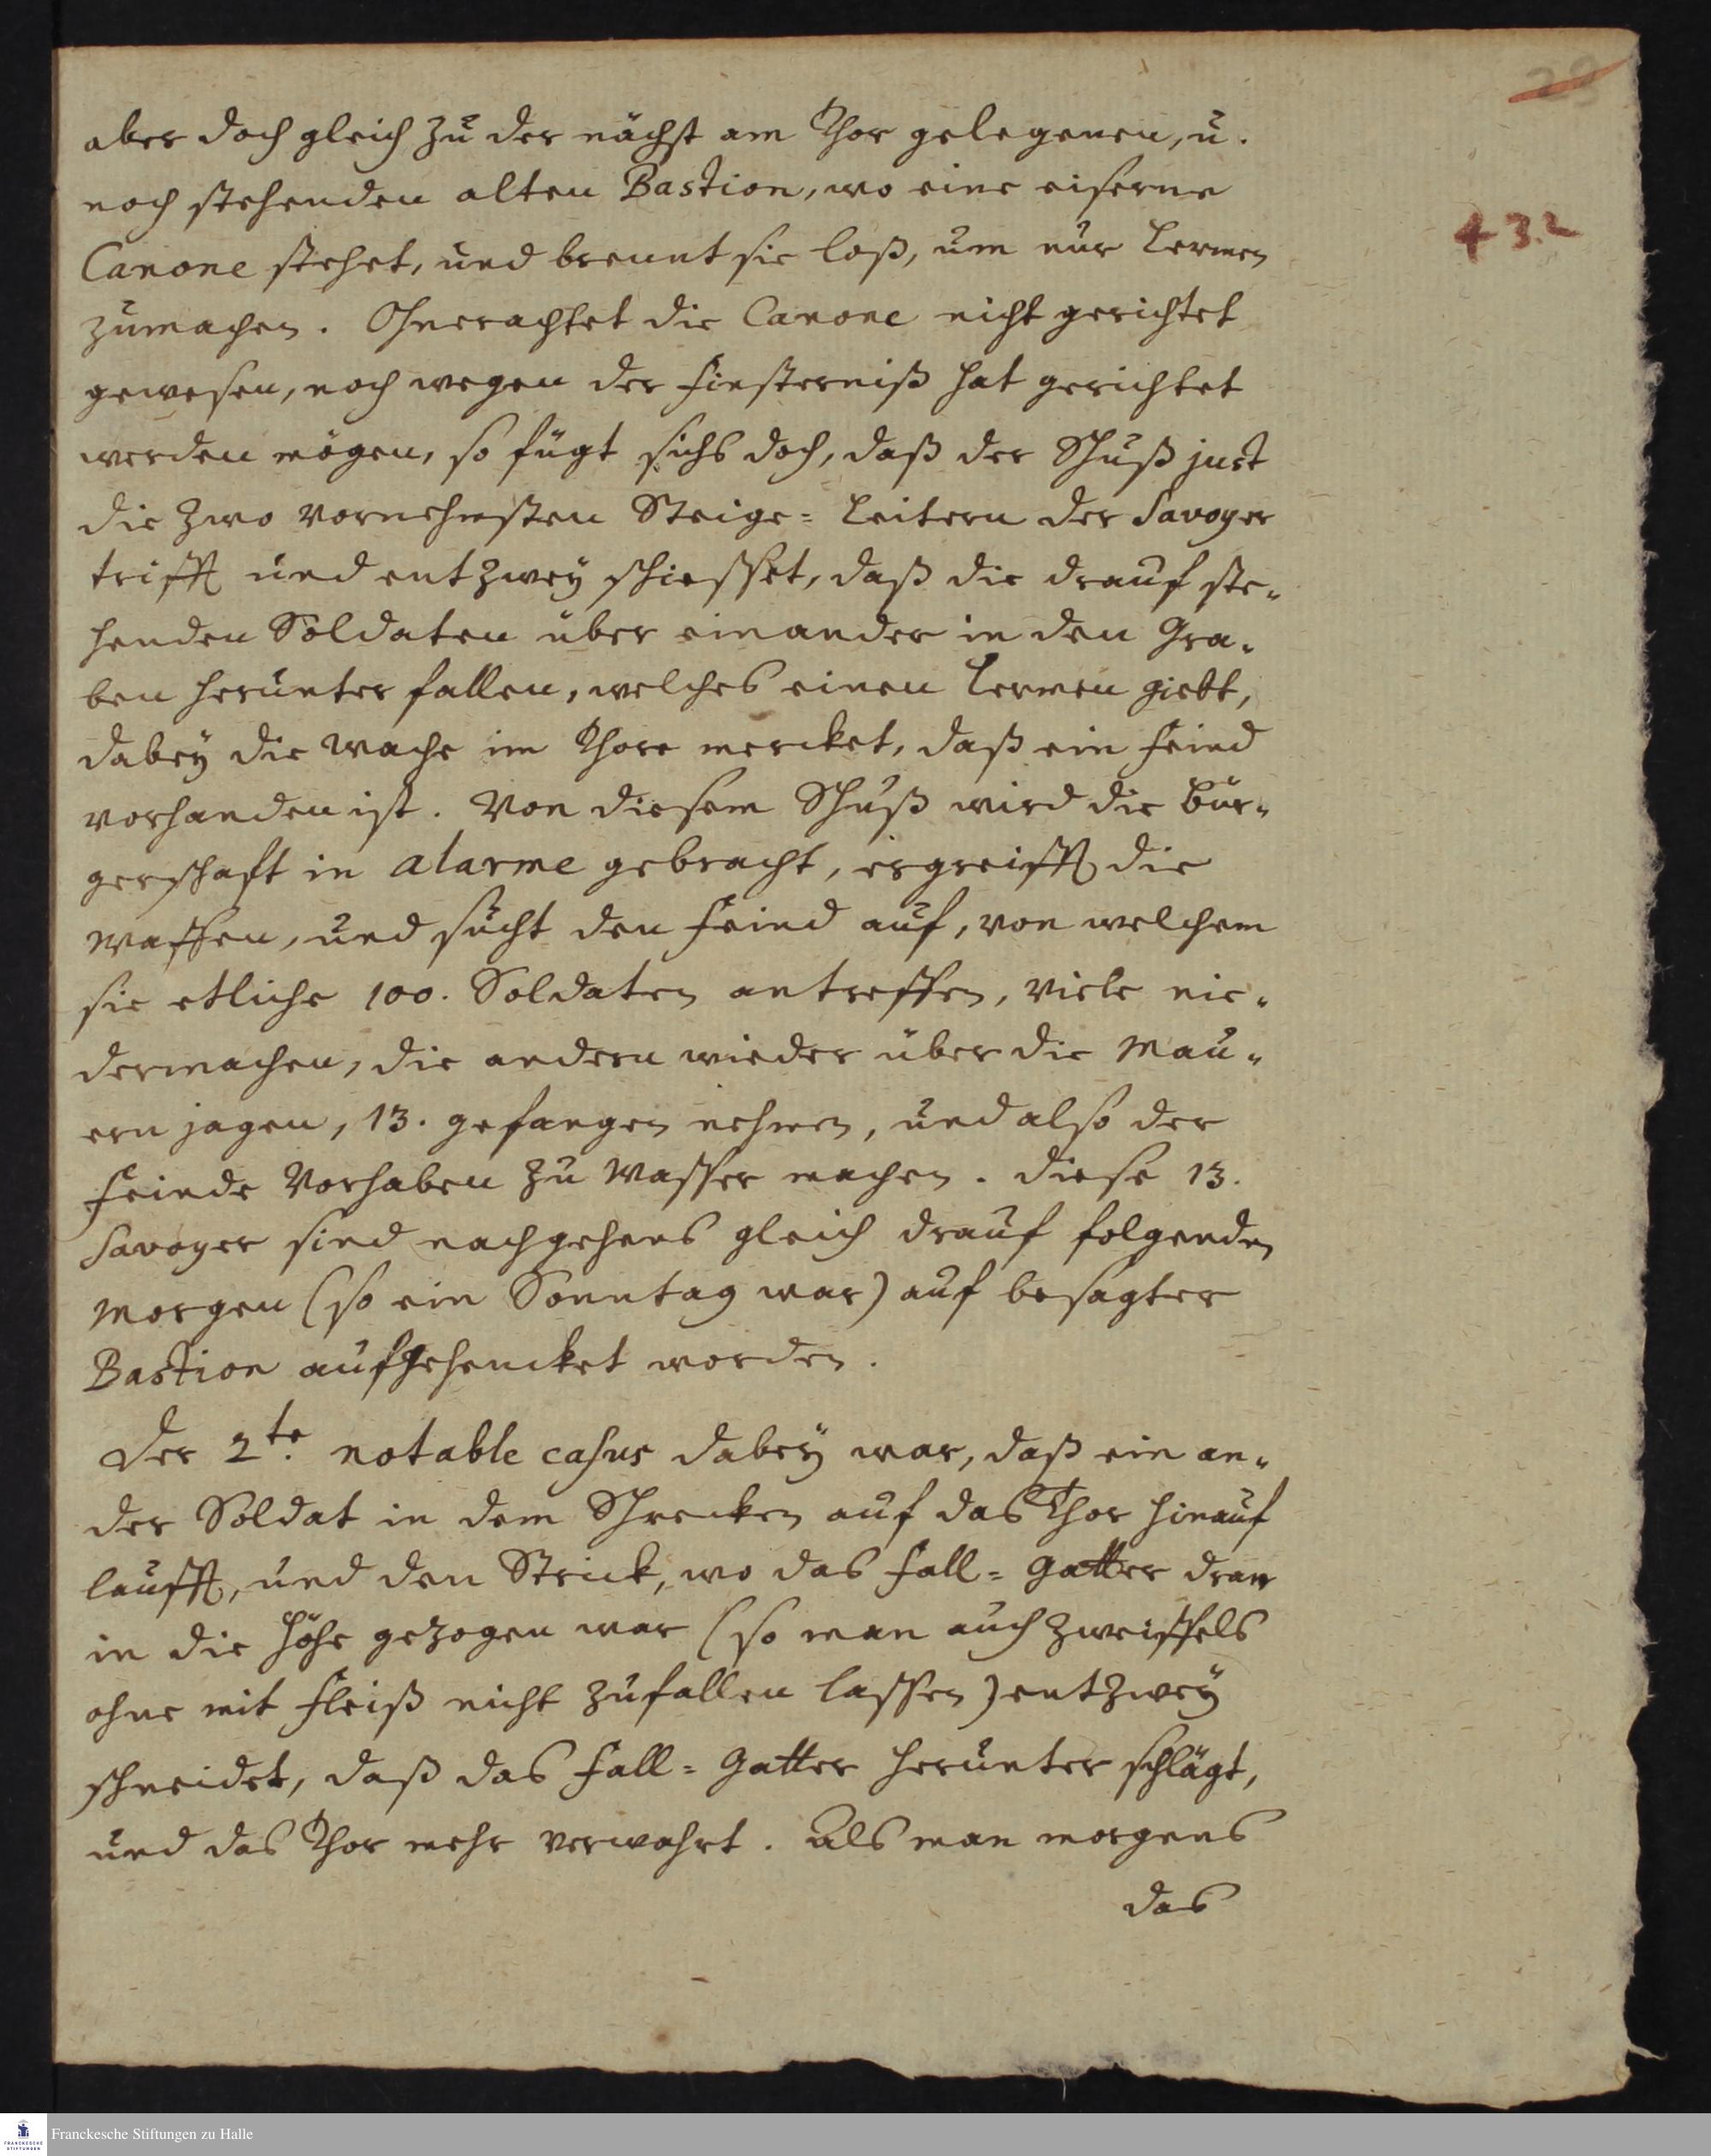 29
432
aber doch gleich zu der nächst am Thor gelegenen, u.
noch stehenden alten Bastion, wo eine eiserne
Canone stehet, und brennt sie loß, um nur Lermen
zumachen. Ohnerachtet die Canone nicht gerichtet
gewesen, noch wegen der Finsterniß hat gerichtet
werden mögen, so fügt sichs doch, daß der Schuß just
die zwo vornehmsten Steige= Leitern der Savoyer
trifft und entzwey schiesset, daß die drauf ste-
henden Soldaten über einander in den Gra-
ben herunter fallen, welches einen Lermen giebt,
dabey die Wache im Thore mercket, daß ein Feind
vorhanden ist. Von diesem Schuß wird die Bür-
gerschaft in alarme gebracht, ergreifft die
Waffen, und sucht den Feind auf, von welchem
sie etliche 100. Soldaten antreffen, viele nie-
dermachen, die andern wieder über die Mau-
ern jagen, 13. gefangen nehmen, und also der
Feinde Vorhaben zu Wasser machen. Diese 13.
Savoyer sind nachgehens gleich drauf folgenden
Morgen (so ein Sonntag war) auf besagter
Bastion aufgehencket worden.
Der 2te. notable casus dabey war, daß ein an-
der Soldat in dem Schrecken auf das Thor hinauf
laufft, und den Strick, wo das Fall= Gatter dran
in die Höhe gezogen war (so man auch zweiffels
ohne mit Fleiß nicht zufallen lassen) entzwey
schneidet, daß das Fall= Gatter herunter schlägt,
und das Thor mehr verwahrt. Als man morgens
das
Franckesche Stiftungen zu Halle